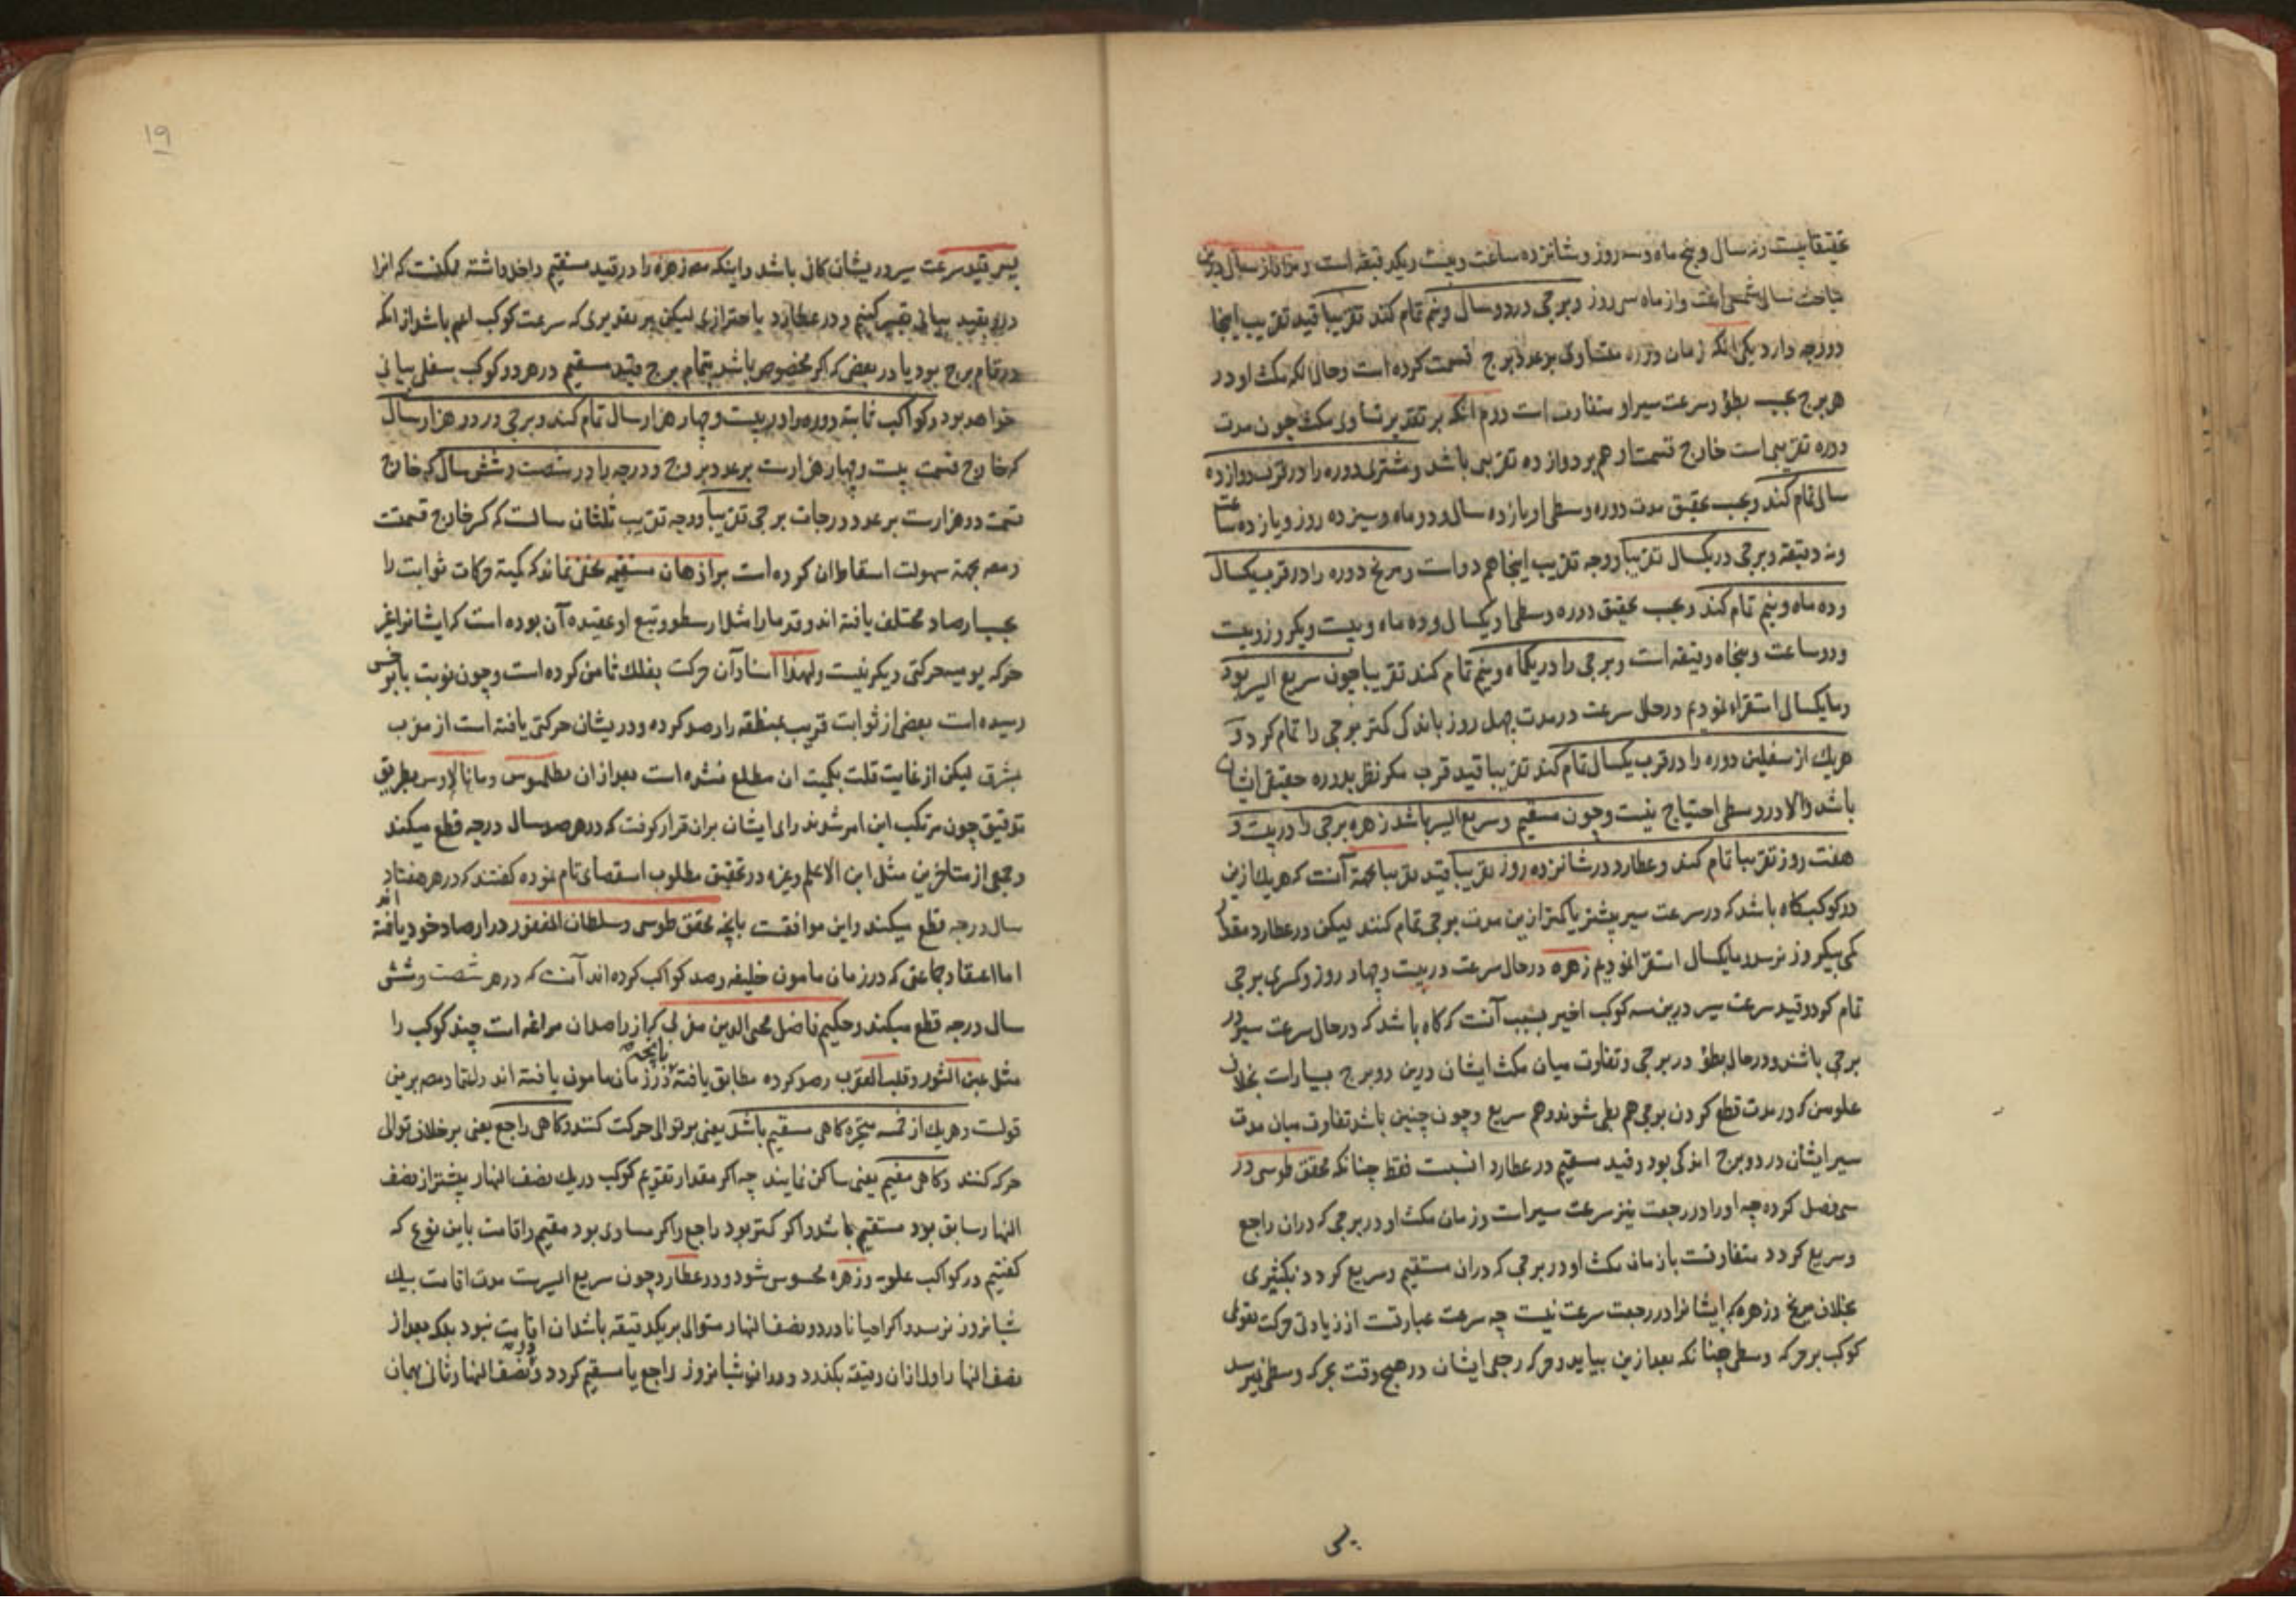 بیست و نه سال و پنج ماه و سه روز و شانزده ساعت و بیست و یکدقیقه است و مراد از سال درین
مباحث سال شمسی است و از ماه سی روز و برجی در دو سال و نیم تمام کند تقریبا قید تقریب اینجا
دو وجه دارد یکی انکه زمان دوره متساوی بر عدد بروج قسمت کرده است و حال انکه مکث او در
هر برج بحسب بطؤ و سرعت سیر او متفاوت است دوم انکه بر تقدیر تساوی مکث چون مدت
دوره تقریبی است خارج قسمت او هم بر دوازده تقریبی باشد و مشتری دوره را در قرب دوازده
سال تمام کند و بحسب تحقیق مدت دوره وسطی او یازده سال و دو ماه و سیزده روز و یازده ساعت
و نه دقیقه و برجی در یکسال تقریبا و وجه تقریب اینجا هم دو است و مریخ دوره را در قرب یکسال
و ده ماه و نیم تمام کند و بحسب تحقیق دوره وسطی او یکسال و ده ماه و بیست و یکروز و بیست
و دو ساعت و پنجاه دقیقه است و برجی را در یکماه و نیم تمام کند تقریبا چون سریع السیر بود
و ما یکسال استقراء نمودیم در حال سرعت در مدت چهل روز باندکی کمتر برجی را تمام کرد و
هریک از سفلیین دوره را در قرب یکسال تمام کند تقریبا قید قرب مکر نظر بدوره حقیقی ایشان
باشد والا در وسطی احتیاج نیست و چون مستقیم و سریع السیر باشد زهره برجی را در بیست و
هفت روز تقریبا تمام کند و عطارد در شانزده روز تقریبا قید تقریبا بجهة آنست که هریک ازین
دو کوکب کاه باشد که در سرعت سیر بیشتر یا کمتر ازین مدت برجی تمام کنند لیکن در عطارد مقدار
کمی بیکروز نرسد و ما یکسال استقرا نمودیم زهره در حال سرعت در بیست و چهار روز و کسری برجی
تمام کرد و قید سرعت سیر درین سه کوکب اخیر بسبب آنست که کاه باشد که در حال سرعت سیر در
برجی باشند و در حال بطؤ در برجی و تفاوت میان مکث ایشان درین دو برج بسیارست بخلاف
علویین که در مدت قطع کردن برجی هم بطی شوند و هم سریع و چون چنین باشد تفاوت میان مدت
سیر ایشان در دو برج اندکی بود و قید مستقیم در عطارد انسبت فقط چنانکه محقق طوسی در
سی فصل کرده چه او را در رجعت نیز سرعت سیر است و زمان مکث او در برجی که دران راجع
و سریع کردد متفاوتست بازمان مکث او در برجی که دران مستقیم و سریع کردد بکثیری
بخلاف مریخ و زهره که ایشانرا در رجعت سرعت نیست چه سرعت عبارتست از زیادتی حرکت تقویمی
کوکب بر حرکه وسطی چنانکه بعد ازین بیاید و حرکه رجعی ایشان در هیچ وقت بحرکه وسطی نمیرسد
پس
۱۹
پس قید سرعت سیر در ایشان کافی باشد و اینکه مصـ زهره را در قید مستقیم داخل داشته ممکنست که انرا
درو بقید بیانی تعبیر کنیم و در عطارد باحترازی لیکن بر تقدیری که سرعت کوکب اعم باشد از انکه
در تمام برج بود یا در بعض که اکر مخصوص باشد بتمام برج قید مستقیم در هر دو کوکب سفلی بیانی
خواهد بود و کواکب ثابته دوره را در بیست و چهار هزار سال تمام کنند و برجی در دو هزار سال
که خارج قسمت بیست و چهار هزارست بر عدد بروج و درجه را در شصت و شش سال که خارج
قسمت دو هزارست بر عدد درجات برجی تقریبا و وجه تقریب ثلثان سالست که کسر خارج قسمتست
و مصـ بجهة سهولت اسقاط ان کرده است بر اذهان مستقیمه مخفی نماند که کمیة حرکات ثوابت را
بحسب ارصاد مختلف یافته اند و قدما را مثل ارسطو و تبع او عقیده آن بوده است که ایشانرا غیر
حرکه یومیه حرکتی دیکر نیست و لهذا اسناد آن حرکت بفلک ثامن کرده است و چون نوبت بابرخس
رسیده است بعضی از ثوابت قریب بمنطقه را رصد کرده و در یشان حرکتی یافته است از مغرب
بمشرق لیکن از غایت قلت بکمیت ان مطلع نشده است بعد ازان بطلمیوس و مانالاوس بطریق
توفیق چون مرتکب این امر شوند رای ایشان بران قرار کرفت که در هر صد سال درجه قطع میکند
و جمعی از متاخرین مثل ابن الاعلم و غیره در تحقیق مطلوب استقصای تام نموده کفتند که در هر هفتاد
سال درجه قطع میکند و این موافقست بانچه محقق طوسی و سلطان المغفور در ارصاد خود یافته اند
اما اعتقاد جماعتی که در زمان مامون خلیفه رصد کواکب کرده اند آنست که در هر شصت و شش
سال درجه قطع میکند و حکیم فاضل محیی الدین مغربی که از راصدان مراغه است چند کوکب را
مثل عین الثور و قلب العقرب رصد کرده مطابق یافته بانچه در زمان مامون یافته اند و اعتماد مصـ برین
قولست و هریک از خمسه متحیره کاهی مستقیم باشد یعنی بر توالی حرکت کنند و کاهی راجع یعنی بر خلاف توالی
حرکه کنند و کاهی مقیم یعنی ساکن نمایند چه اکر مقدار تقویم کوکب در یک نصف النهار بیشتر از نصف
النهار سابق بود مستقیم باشد و اکر کمتر بود راجع و اکر مساوی بود مقیم و اقامت باین نوع که
کفتیم در کواکب علویه و زهره محسوس شود و در عطارد چون سریع السیرست مدت اقامت بیک
شبانروز نرسد و اکر احیانا در دو نصف النهار متوالی بر یکدقیقه باشد ان اقامت نبود بلکه بعد از
نصف النهار اول ازان دقیقه بکذرد و در ان شبانروز راجع یا مستقیم کردد و در نصف النهار ثانی بهمان